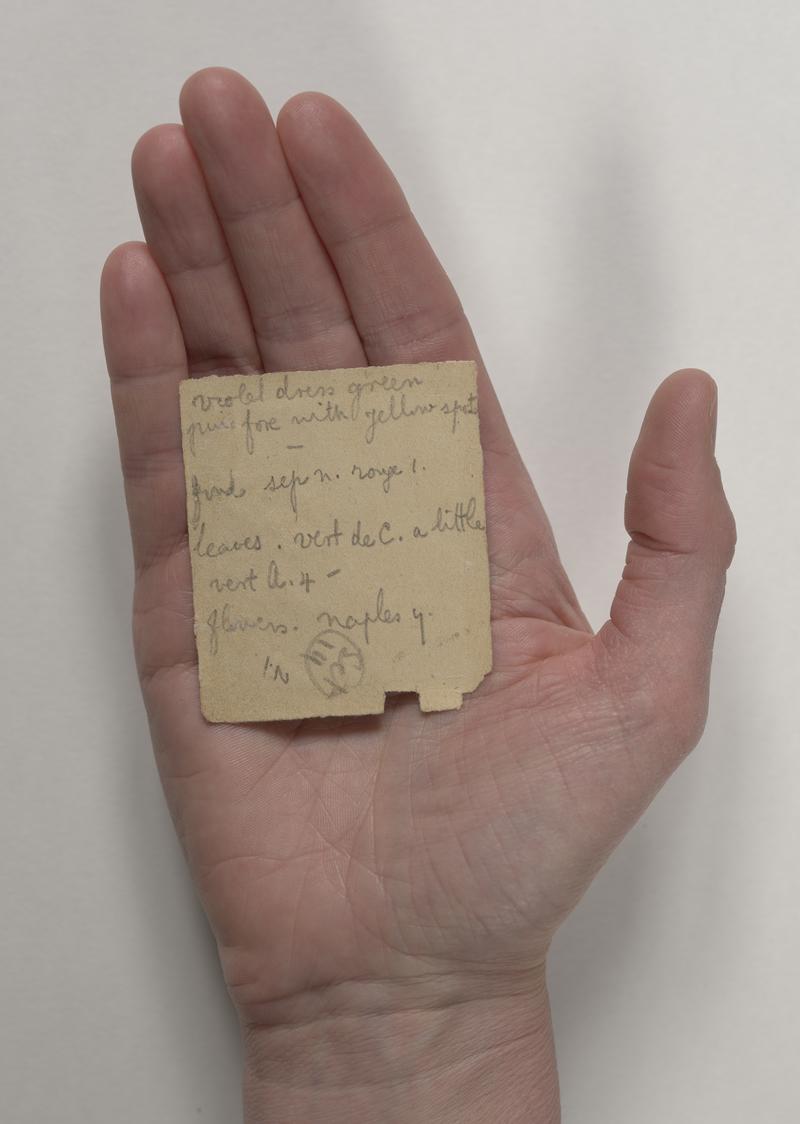 violet dress green
pinafore with yellow spot
find sep n. rouge 1.
leaves. vert de C. a little
vert A. 4 -
flowers. naples y.